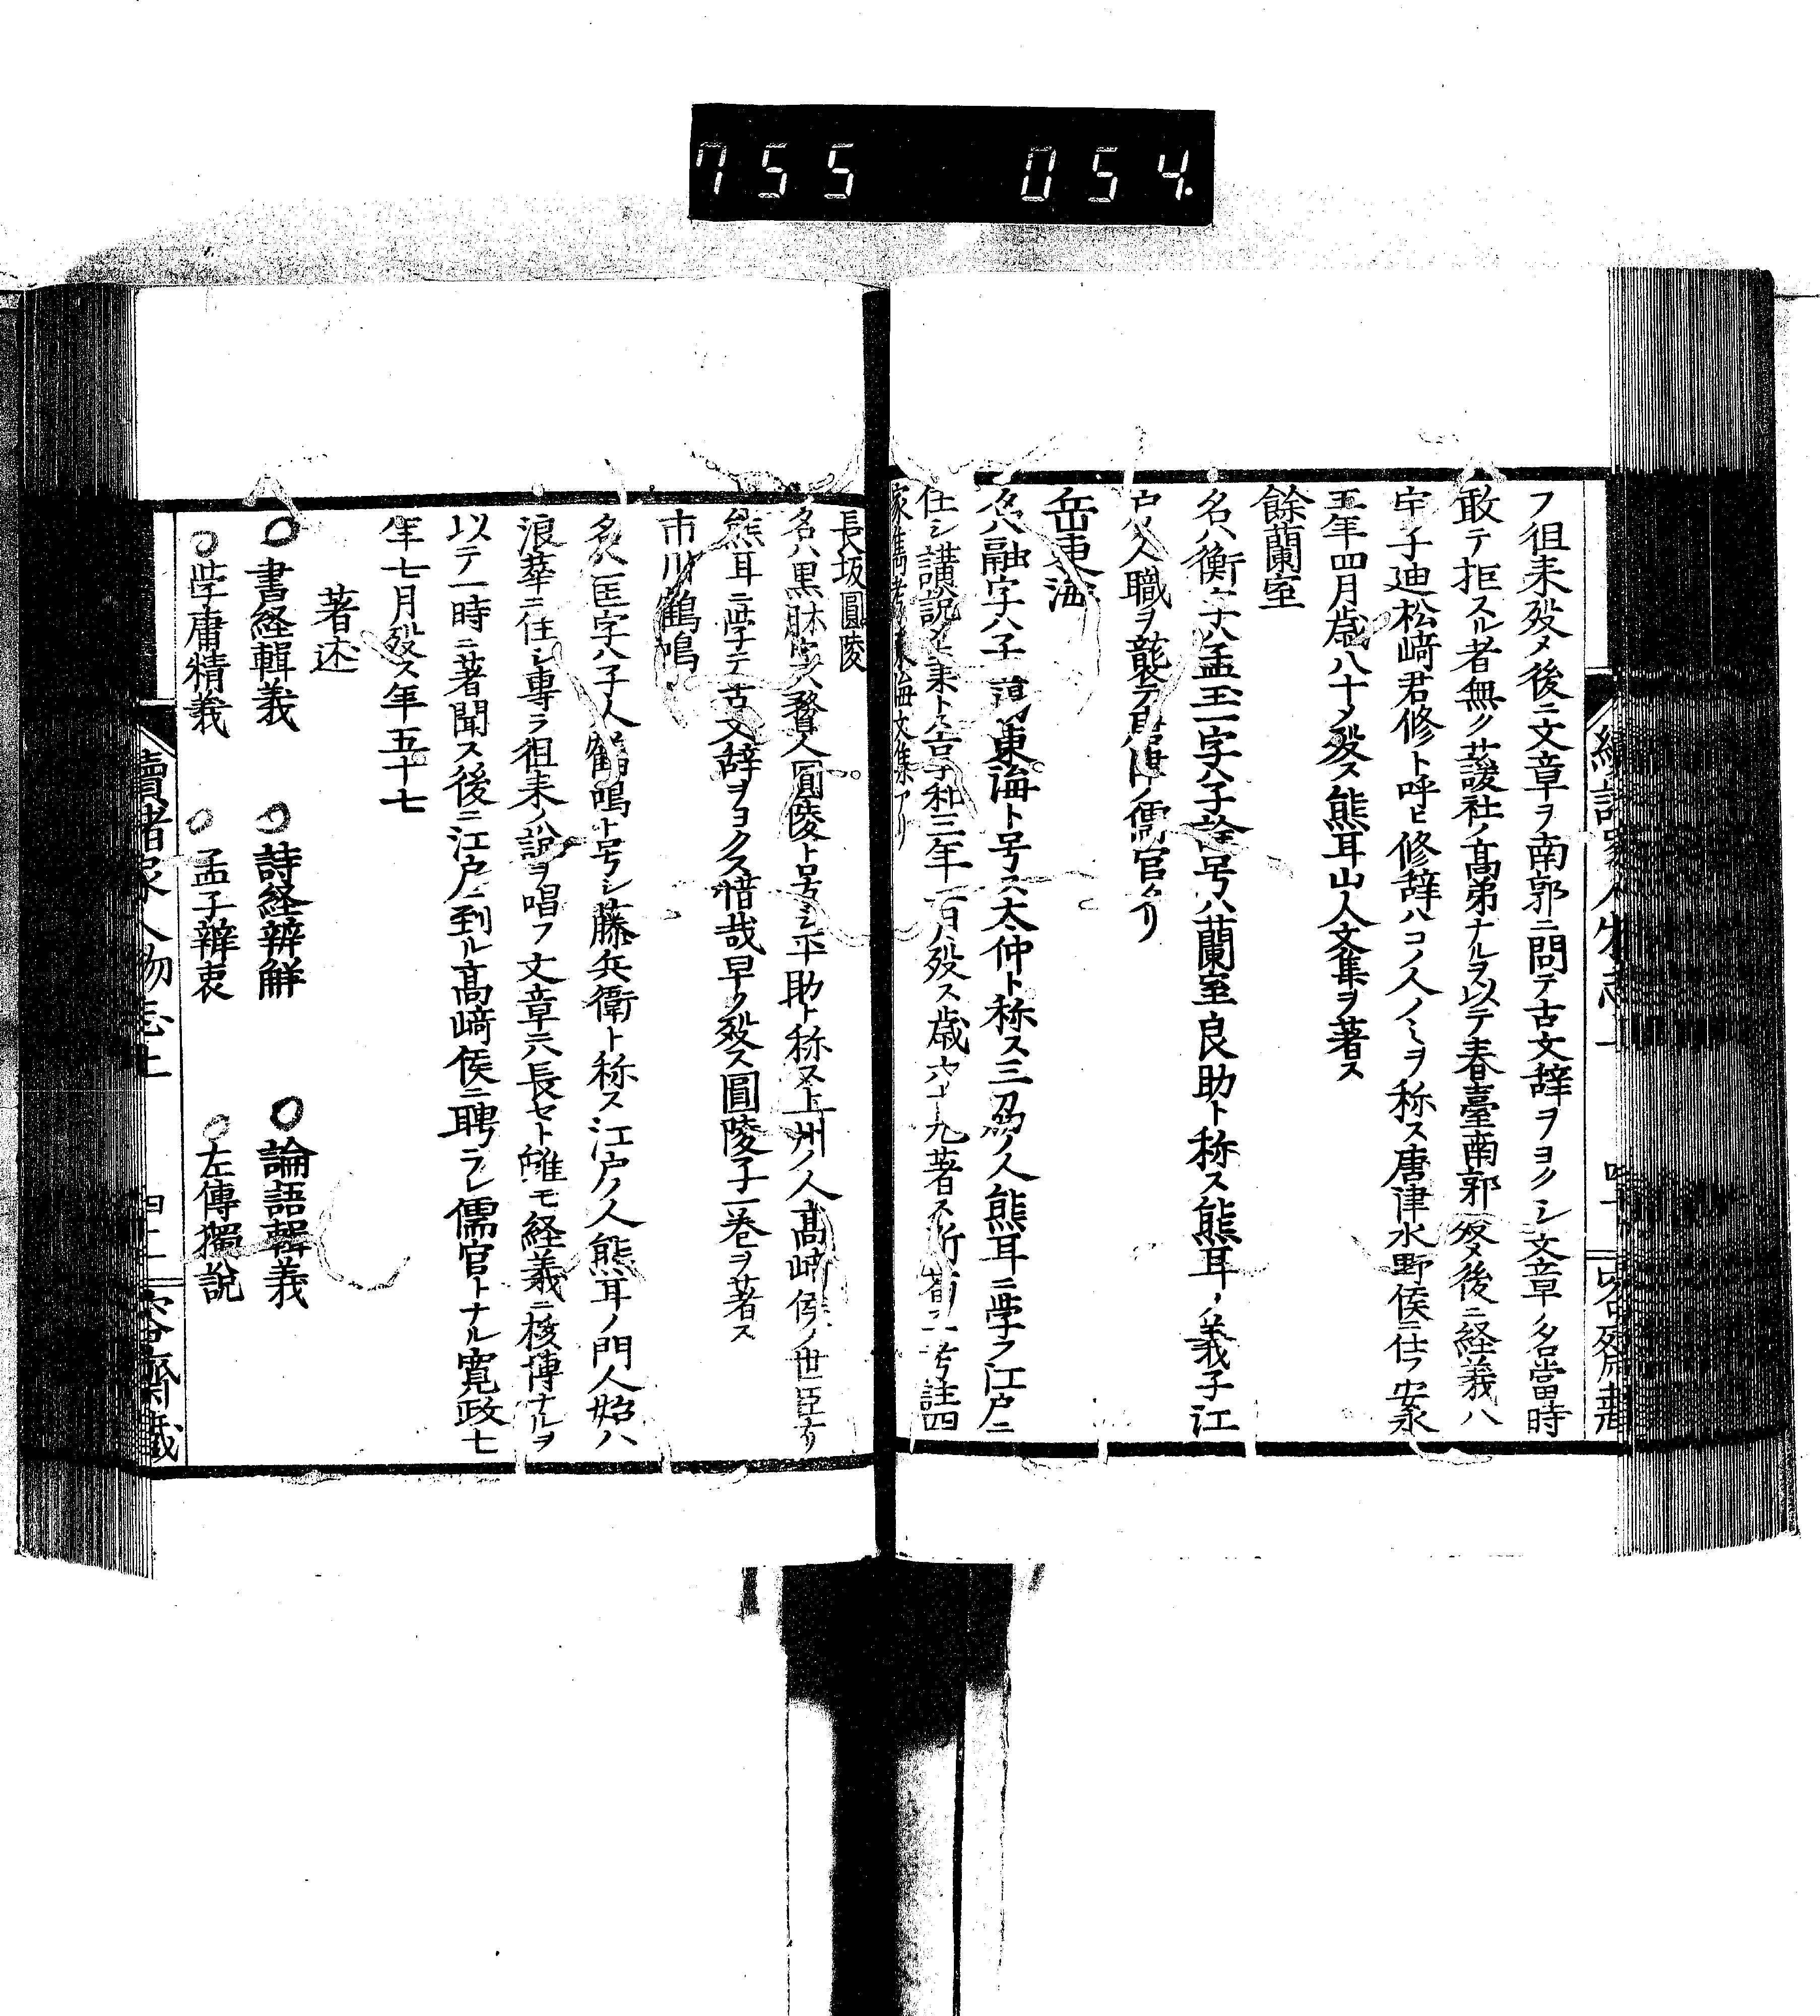 755 054.
フ徂徠歿メ後ニ文章ヲ南郭ニ問テ古文辞ヲヨクシ文章ノ名當時
敢テ拒スル者無ク蘐社ノ髙弟ナルヲ以テ春臺南郭歿メ後ニ経義ハ
宇子迪松﨑君修ト呼ヒ修辞ハコノ人ノミヲ称ス唐津水野侯ニ仕フ安永
五年四月歳八十ノ歿ス熊耳山人文集ヲ著ス
餘蘭室
名ハ衡字ハ孟玉一字ハ子詮号ハ蘭室良助ト称ス熊耳ノ義子江
户ノ人職ヲ襲テ唐津ノ儒官タリ
岳東海
名ハ融字ハ子東海ト号ス太仲ト称ス三刕ノ人熊耳ニ学フ江户ニ
住シ講説ヲ業トス享和三年百歿ス歳六十九著ス所荀子考註四
家雋考東海文集アリ
長坂圓陵
名ハ黒肱字ハ贅人圓陵ト号シ平助ト称ス上州ノ人髙﨑侯ノ世臣ナリ
熊耳ニ学テ古文辞ヲヨクス惜哉早ク歿ス圓陵子一巻ヲ著ス
市川鶴鳴
名ハ匡字ハ子人鶴鳴ト号シ藤兵衛ト称ス江户ノ人熊耳ノ門人始ハ
浪華ニ住シ專ラ徂徠ノ説ヲ唱フ文章ニハ長セト雖モ経義ニ核博ナルヲ
以テ一時ニ著聞ス後ニ江户ニ到ル髙﨑侯ニ聘ラレ儒官トナル寛政七
年七月歿ス年五十七
著述
○書経輯義 ○詩経辨解 ○論語輯義
○学庸精義 ○孟子辯衷 ○左傳獨説
續諸家人物志上 四十二